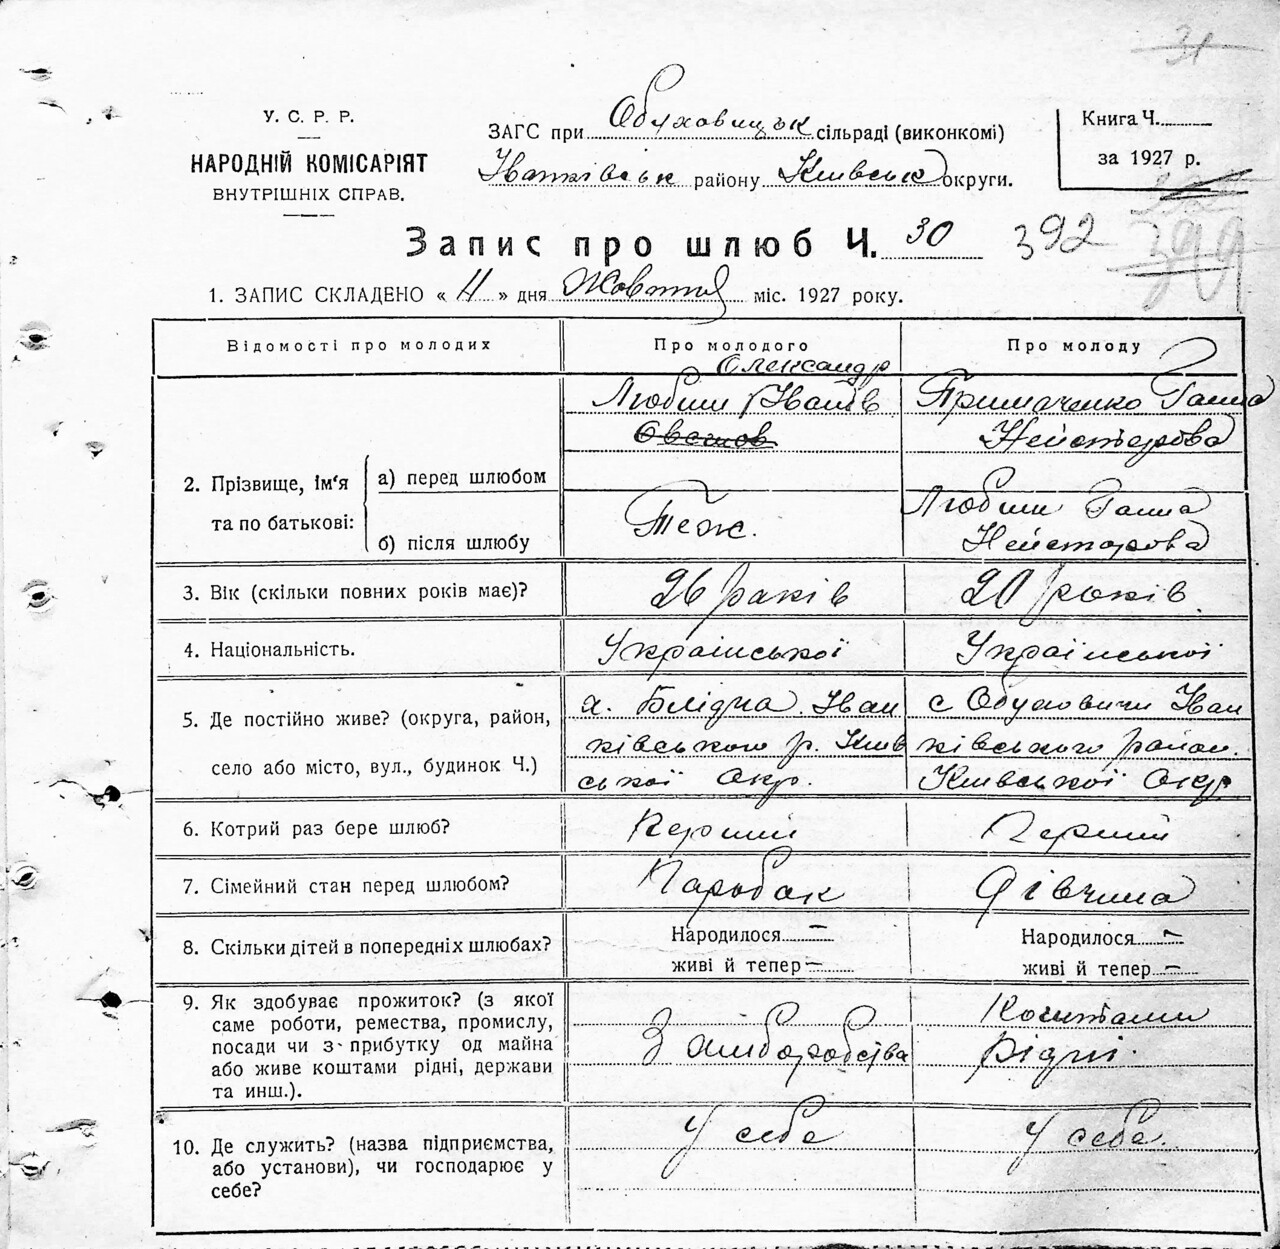 31
У. С. Р. Р.
НАРОДНІЙ КОМІСАРІЯТ
ВНУТРІШНІХ СПРАВ.
ЗАГС при Обуховицьк сільраді (виконкомі)
Іванківськ району Київськ округи.
Книга Ч.
за 1927 р.
Запис про шлюб Ч. 30
392
399
1. ЗАПИС СКЛАДЕНО « 11 » дня Жовтня міс. 1927 року.
Відомості про молодих
Про молодого
Про молоду
2. Прізвище, ім'я
та по батькові:
а) перед шлюбом
Олександр
Любич Іванів
Примаченко Ганна
Нейстерова
б) після шлюбу
Теж.
Любич Ганна
Нейсторова
3. Вік (скільки повних років має)?
26 раків
20 років
4. Національність.
Української
Української
5. Де постійно живе? (округа, район,
село або місто, вул., будинок Ч.)
х. Блідча Іван
ківського р. Київ
ської окр.
с Обуховичи Іван
ківського район.
Київської Окр
6. Котрий раз бере шлюб?
Перший
Перший
7. Сімейний стан перед шлюбом?
Парубак
Дівчина
8. Скільки дітей в попередніх шлюбах?
Народилося –
живі й тепер –
Народилося –
живі й тепер –
9. Як здобуває прожиток? (з якої
саме роботи, ремества, промислу,
посади чи з прибутку од майна
або живе коштами рідні, держави
та инш.).
З хліборобства
Коштами
Рідні.
10. Де служить? (назва підприємства,
або установи), чи господарює у
себе?
У себе
У себе.